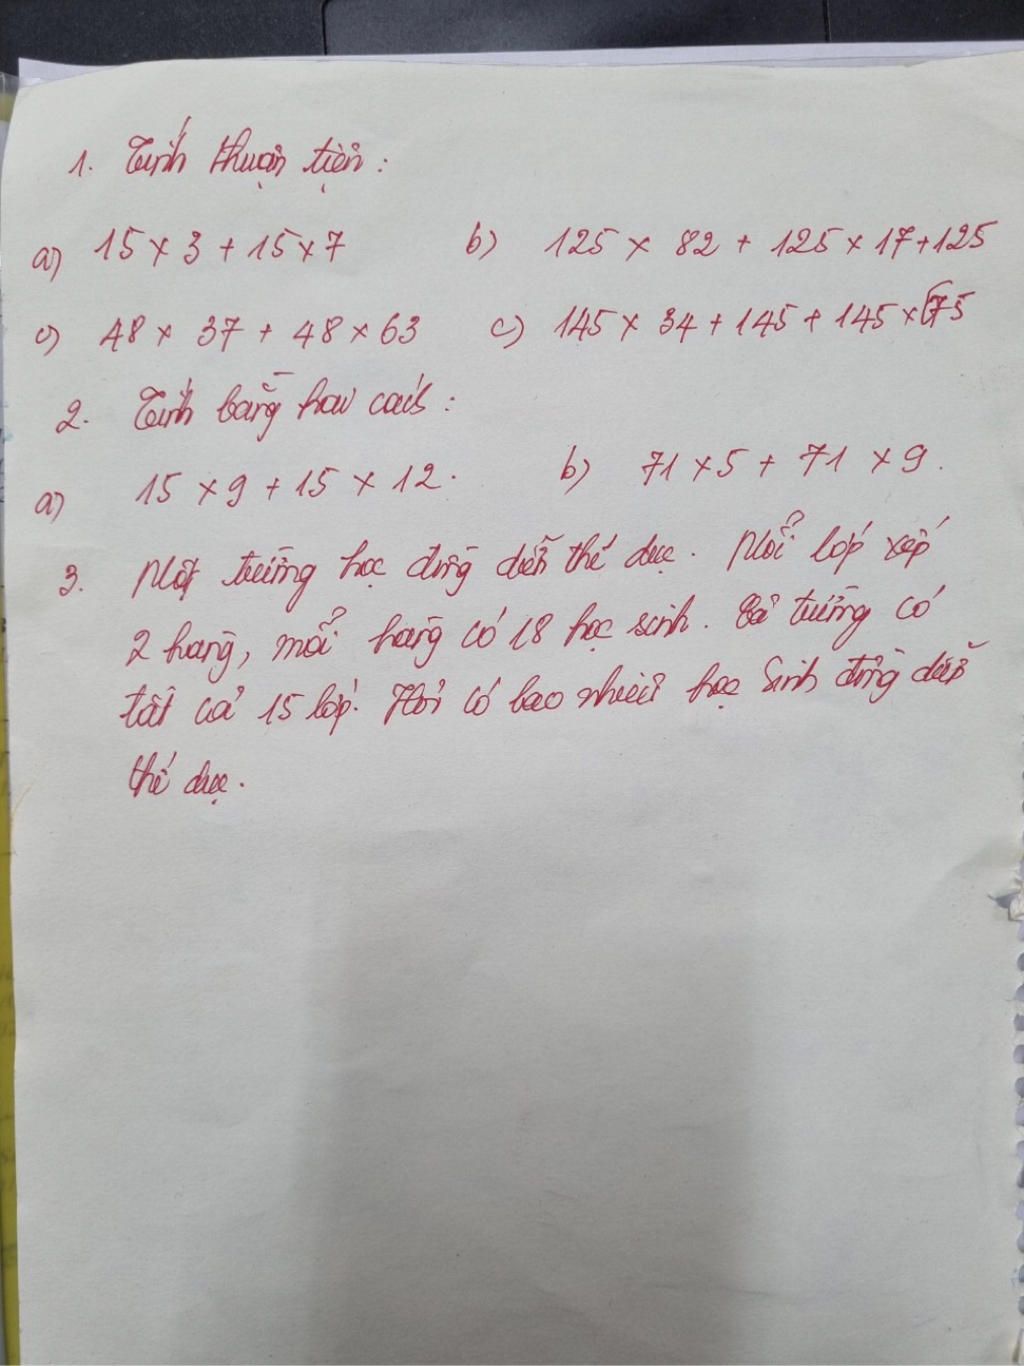 1. Tính thuận tiện :
a) 15 × 3 + 15 × 7 b) 125 × 82 + 125 × 17 + 125
c) 48 × 37 + 48 × 63 c) 145 × 34 + 145 + 145 × 75
2. Tính bằng hai cách :
a) 15 × 9 + 15 × 12. b) 71 × 5 + 71 × 9.
3. Một trường học đồng diễn thể dục. Mỗi lớp xếp
2 hàng, mỗi hàng có 18 học sinh. Cả trường có
tất cả 15 lớp. Hỏi có bao nhiêu học sinh đồng diễn
thể dục.